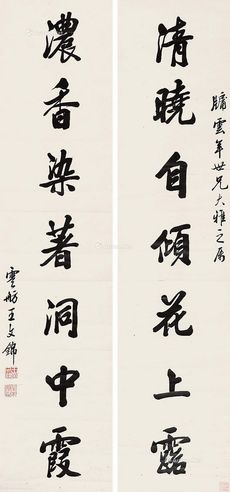 牗雲年世兄大雅之属
清曉自傾花上露
濃香染著洞中霞
雲舫王文錦